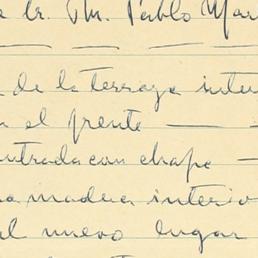 Pablo Mar
de la terraza inter
el frente —
entrada con chape —
madera interio
al nuevo lugar